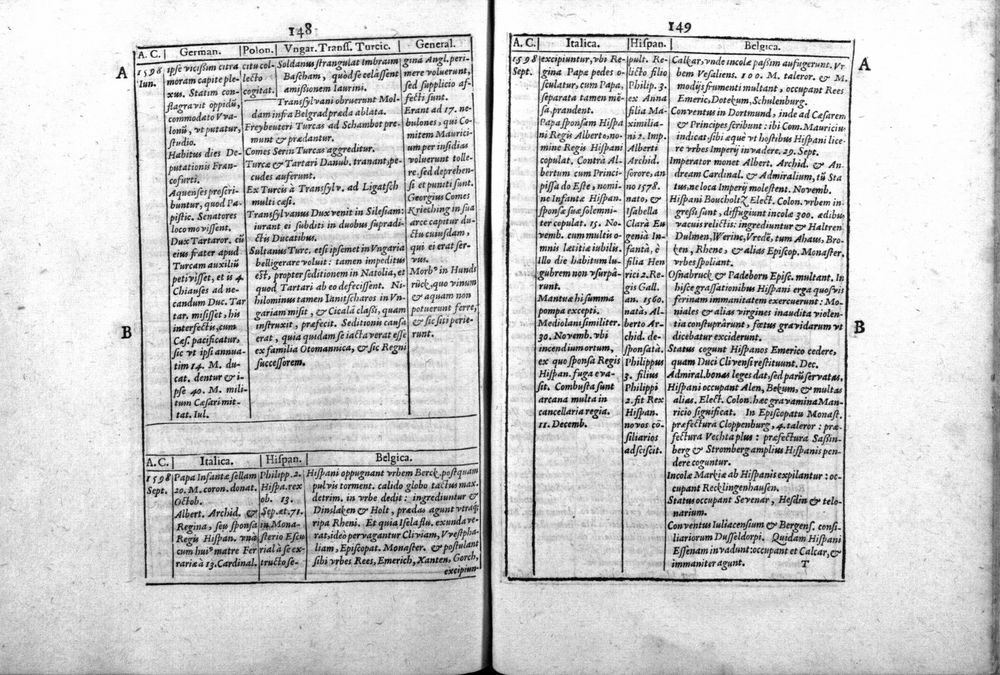 148
A. C.
German.
Polon.
Vngar. Transs. Turcic.
General.
A
B
1598
Iun.
ipse vicissim citra
moram capite ple-
xus. Statim con-
flagravit oppidū,
commodato Vva-
lonū, vt putatur,
studio.
Habitus dies De-
putationis Fran-
cofurti.
Aquenses proscri-
buntur, quod Pa-
pistic. Senatores
loco movissent.
Dux Tartaror. cū
eius frater apud
Turcam auxiliū
petivisset, et is 4
Chiauses ad ne-
candum Duc. Tar
tar. misisset, his
interfectis, cum
Cæs. pacificatur,
sic vt ipsi annua-
tim 14. M. du-
cat. dentur & i-
pse 40. M. mili-
tum Cæsari mit-
tat. Iul.
citu col-
lecto
cogitat.
Soldanus strangulat Imbraim
Bascham, quòd se celassent
amissionem Iaurini.
Transsylvani obruerent Mol-
dam infra Belgrad præda ablata.
Freybeuteri Turcas ad Schambot pre-
munt & prædantur.
Comes Serin Turcas aggreditur.
Turcæ & Tartari Danub. tranant, pe-
cudes auferunt.
Ex Turcis à Transsylv. ad Ligatsch
multi cæsi.
Transsylvanus Dux venit in Silesiam:
iurant ei subditi in duobus supradi-
ctis Ducatibus.
Sultanus Turc. etsi ipsemet in Vngaria
belligerare voluit: tamen impeditus
est, propter seditionem in Natolia, et
quod Tartari ab eo defecissent. Ni-
hilominus tamen Ianitscharos in Vn-
gariam misit, & Cicalā classi, quam
instruxit, præfecit. Seditionis causa
erat, quia quidam se iacta verat esse
ex familia Otomannica, & sic Regni
successorem.
gina Angl. peri-
mere voluerunt,
sed supplicio af-
fecti sunt.
Erant ad 17. ne-
bulones, qui Co-
mitem Mauriciu-
um per insidias
voluerunt tolle-
re, sed deprehen-
si et puniti sunt.
Georgius Comes
Kriechingin sua
arce capitur du-
ctu cuiusdam,
qui ei erat ser-
vus.
Morbꝰ in Hunds
rück, quo vinum
& aquam non
potuerunt ferre,
& sic siti perie-
runt.
A. C.
Italica.
Hispan.
Belgica.
1598
Sept.
Papa Infantæ sellam
20. M. coron. donat.
Octob.
Albert. Archid. &
Regina, seu sponsa
Regū Hispan. vnà
cum huiꝰ matre Fer
rariæ à 13. Cardinal.
Philipp. 2.
Hispa. rex
ob. 13.
Sep. et. 71.
in Mona-
sterio Escu
rial à se ex-
tructo se-
Hispani oppugnant vrbem Berck, postquam
pulvis torment. calido globo tactus max.
detrim. in vrbe dedit: ingrediuntur &
Dinslaken & Holt, prædas agunt vtraq;
ripa Rheni. Et quia Isela flu. exunda ve-
rat, ideo pervagantur Cliviam, Vvestpha-
liam, Episcopat. Monaster. & postulant
sibi vrbes Rees, Emerich, Xanten, Gorch,
excipiun-
149
A. C.
Italica.
Hispan.
Belgica.
A
B
1598
Sept.
excipiuntur, vbi Re-
gina Papæ pedes o-
sculatur, cum Papa,
separata tamen mē-
sa, prandent.
Papa sponsam Hispa
ni Regis Alberto, no-
mine Regis Hispani
copulat. Contrà Al-
bertum cum Princi-
pissa do Este, nomi-
ne Infantæ Hispan.
sponsæ suæ solemni-
ter copulat. 15. No-
vemb. cum multis o-
mnis lætitiæ iubilis.
Illo die habitum lu-
gubrem non vsurpā-
runt.
Mantuæ hi summa
pompa excepti.
Mediolani similiter.
30. Novemb. vbi
incendium ortum,
ex quo sponsa Regis
Hispan. fuga eva-
sit. Combusta sunt
arcana multa in
cancellaria regia.
11. Decemb.
pult. Re-
licto filio
Philip. 3.
ex Anna
filia Ma-
ximilia-
ni 2. Imp.
Alberti
Archid.
sorore, an
no 1578.
nato, &
Isabella
Clara Eu
genia In-
fantâ, è
filia Hen
rici 2. Re-
gis Gall.
an. 1560.
natâ, Al-
berto Ar-
chid. de-
sponsatâ.
Philippus
3. filius
Philippi
2. fit Rex
Hispan.
novos cō-
siliarios
adsciscit.
Calkar, vnde incolæ passim aufugerunt. Vr
bem Vesaliens. 100. M. taleror. & M.
modijs frumenti multant, occupant Rees
Emeric, Dotekum, Schulenburg.
Conventus in Dortmund, inde ad Cæsarem
& Principes scribunt: ibi Com. Mauriciu-
indicat, sibi æque vt hostibus Hispani lice
re vrbes Imperij invadere. 29. Sept.
Imperator monet Albert. Archid. & An-
dream Cardinal. & Admiralium, tū Sta
tus, ne loca Imperij molestent. Novemb.
Hispani Boucholtz Elect. Colon. vrbem in-
gressi sunt, diffugiunt incolæ 300. ædibus
vacuis relictis: ingrediuntur & Haltren
Dulmen, Werinc, Vrede, tum Ahaus, Bro-
ken, Rhene, & alias Episcop. Monaster.
vrbes spoliant.
Osnabruck & Padeborn Episc. multant. In
hisce grassationibus Hispani erga quosvis
ferinam immanitatem exercuerunt: Mo-
niales & alias virgines inaudita violen-
tia constuprârunt, fœtus gravidarum vt
dicebatur exciderunt.
Status cogunt Hispanos Emerico cedere,
quam Duci Clivensi restituunt. Dec.
Admiral. bonas leges dat, sed parū servatas.
Hispani occupant Alen, Bekum, & multas
alias. Elect. Colon. hæc gravamina Mau-
ricio significat. In Episcopatu Monast.
præfectura Cloppenburg, 4. taleror: præ-
fectura Vechta plus: præfectura Sassin-
berg & Stromberg amplius Hispanis pen-
dere coguntur.
Incolæ Markiæ ab Hispanis expilantur: oc-
cupant Recklingenhausen.
Status occupant Sevenar, Hesslin & telo-
narium.
Conventus Iuliacensium & Bergens. consi-
liariorum Dusseldorpi. Quidam Hispani
Essenam invadunt: occupant et Calcar, &
immaniter agunt.
T